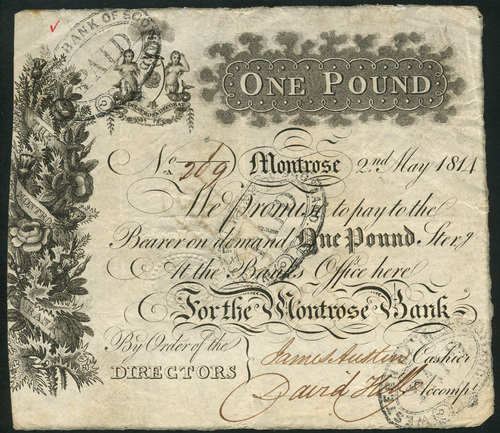 BANK OF SCO
PAID
ONE POUND
No. A 20/9 Montrose 2nd May 1814
We Promise to pay to the
Bearer on demand One Pound Sterg
At the Banks Office here
For the Montrose Bank
By Order of the
DIRECTORS
James Austin Cashier
David Hill Accompt
THE
MONTROSE
BANK